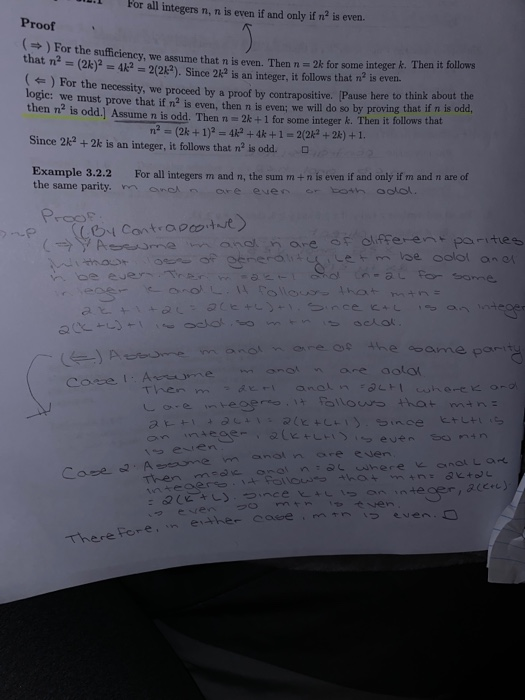 For all integers n, n is even if and only if n² is even.
Proof
(⇒) For the sufficiency, we assume that n is even. Then n = 2k for some integer k. Then it follows
that n² = (2k)² = 4k² = 2(2k²). Since 2k² is an integer, it follows that n² is even.
(⇐) For the necessity, we proceed by a proof by contrapositive. [Pause here to think about the
logic: we must prove that if n² is even, then n is even; we will do so by proving that if n is odd,
then n² is odd.] Assume n is odd. Then n = 2k + 1 for some integer k. Then it follows that
n² = (2k + 1)² = 4k² + 4k + 1 = 2(2k² + 2k) + 1.
Since 2k² + 2k is an integer, it follows that n² is odd. □
Example 3.2.2 For all integers m and n, the sum m + n is even if and only if m and n are of
the same parity. m and n are even or both odd.
Proof
(By Contrapositive)
(⇒) Assume m and n are of different parities
Without loss of generality, Let m be odd and
n be even. Then m = 2k+1 and n = 2L for some
integer k and L. It follows that m+n =
2k+1+2L = 2(k+L)+1. Since k+L is an integer
2(k+L)+1 is odd, so m+n is odd.
(⇐) Assume m and n are of the same parity
Case 1: Assume m and n are odd
Then m = 2k+1 and n = 2L+1 where k and
L are integers. It follows that m+n =
2k+1+2L+1 = 2(k+L+1). Since k+L+1 is
an integer, 2(k+L+1) is even so m+n
is even
Case 2: Assume m and n are even
Then m=2k and n=2L where k and L are
integers. It follows that m+n = 2k+2L
= 2(k+L) Since k+L is an integer, 2(k+L)
is even so m+n is even.
Therefore, in either case, m+n is even. □